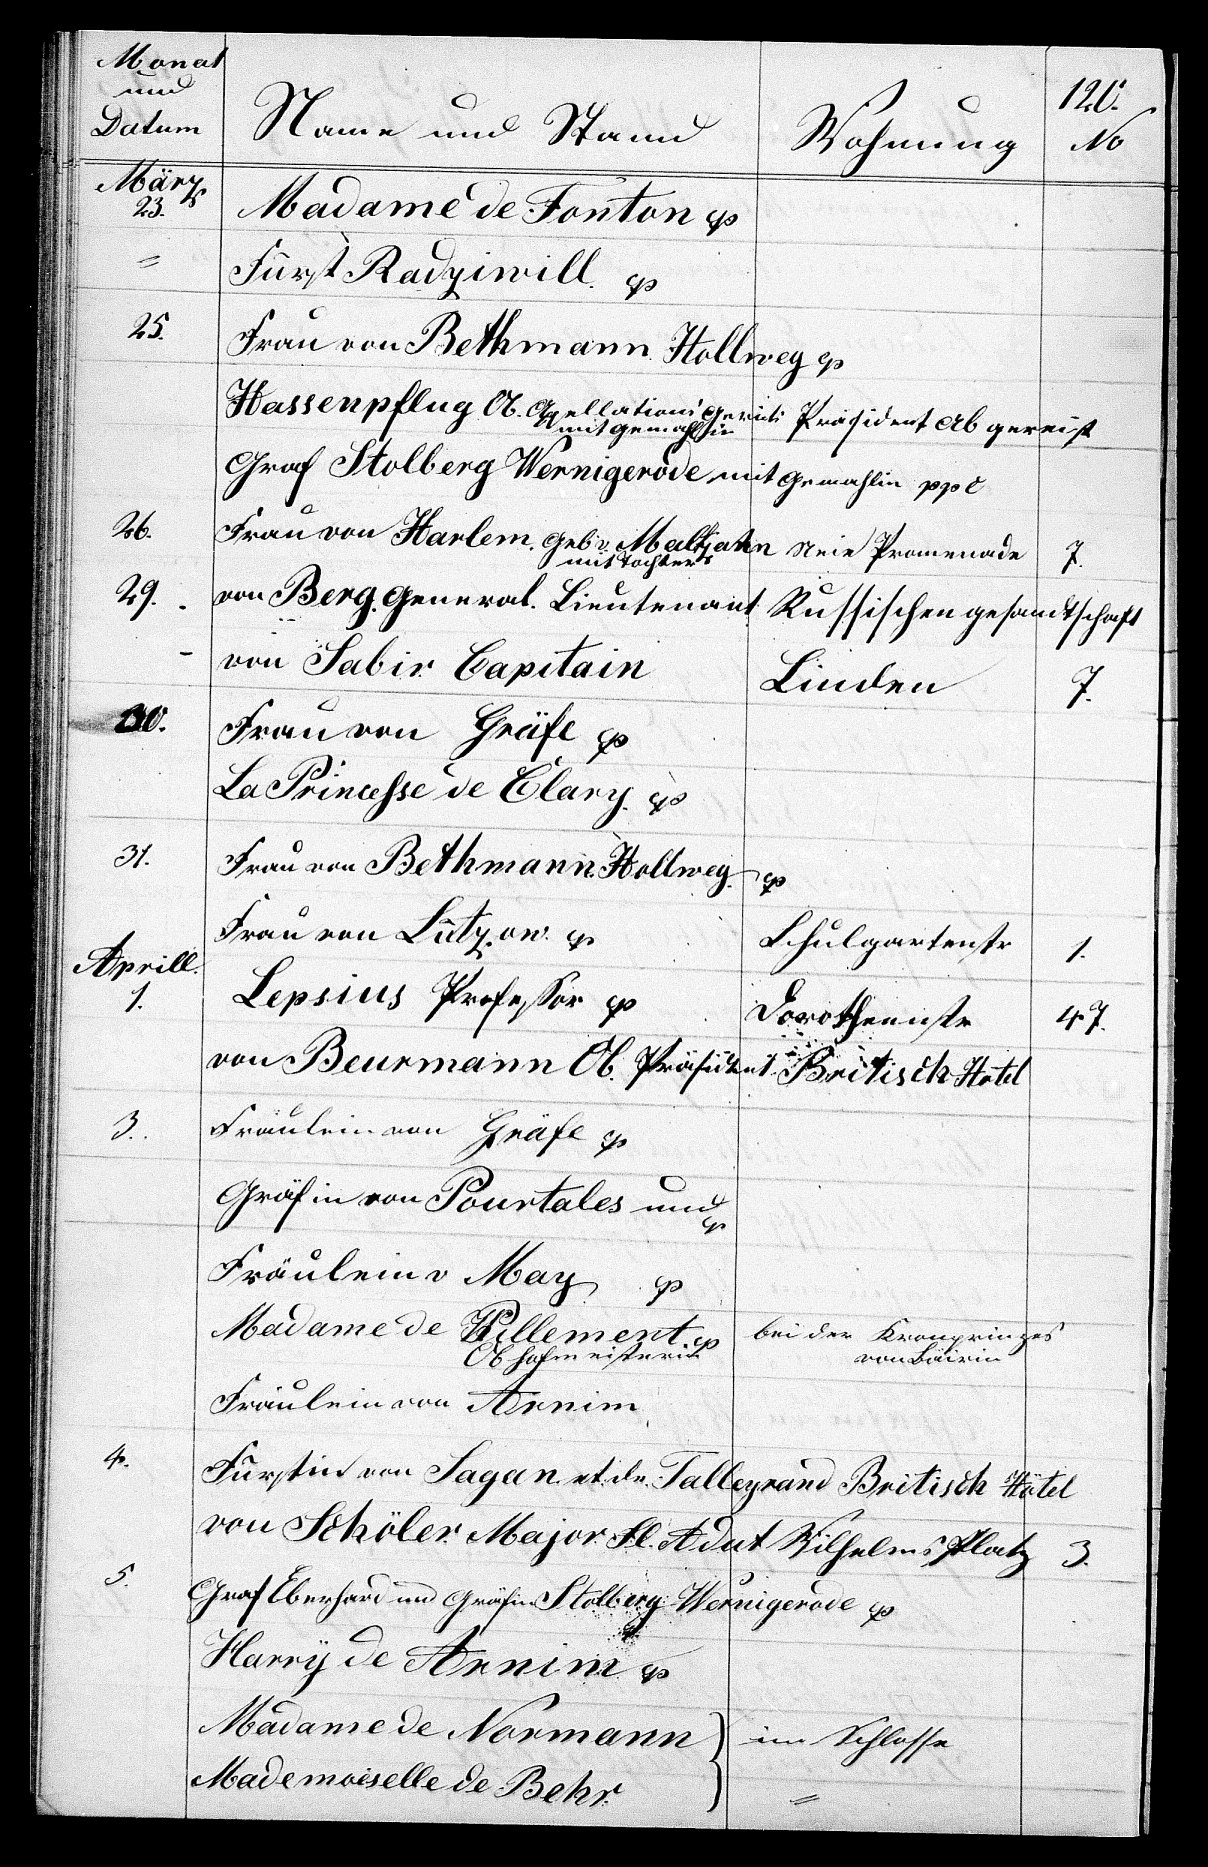 Monat und Datum Name und Stand Wohnung 120. No
März 23. Madame de Fonton
= Fürst Radziwill.
25. Frau von Bethmann Hollweg
Hassenpflug Ob. Appellations Gerichts Präsident abgereist
mit Gemahlin
Graf Stolberg Wernigerode mit Gemahlin ppc
26. Frau von Harlem. geb. v. Maltzahn Neue Promenade 7.
mit Tochter
29. von Berg. General. Lieutenant Russischen gesandtschaft
- von Sabir Capitain Linden 7.
30. Frau von Gräfe
La Princesse de Clary.
31. Frau von Bethmann. Hollweg.
Frau von Lützow. Schulgartenstr 1.
Aprill. 1. Lepsius Professor Dorotheenstr 47.
von Beurmann Ob. Präsident Britisch Hotel
3. Fräulein von Gräfe
Gräfin von Pourtales und
Fräulein v May
Madame de Pillement bei der Kronprinzes
Obhofmeisterin von Bäirin
Fräulein von Arnim
4. Fürstin von Sagan et de Talleyrand Britisch Hôtel
von Schöler. Major. Fl. Adut Wilhelms Platz 3.
5. Graf Eberhard und Gräfin Stolberg Wernigerode
Harry de Arnim
Madame de Normann im Schlosse
Mademoiselle de Behr. =